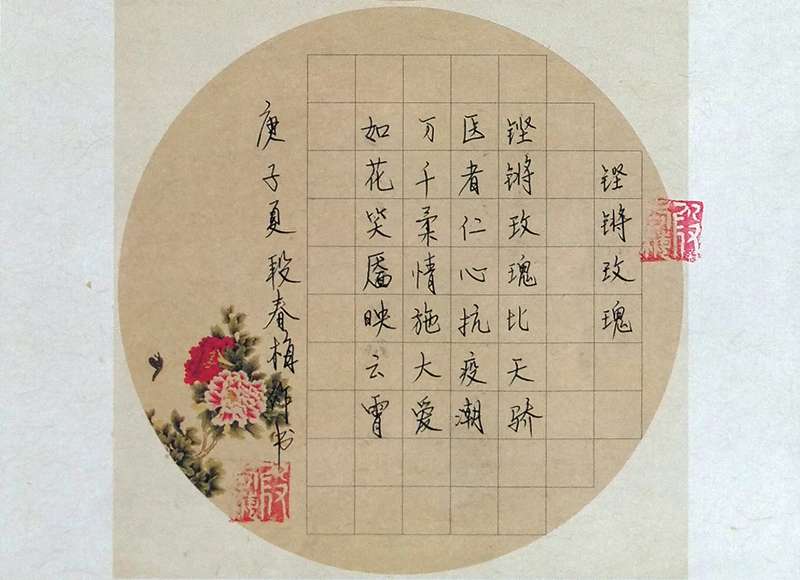 铿锵玫瑰
铿锵玫瑰比天骄
医者仁心抗疫潮
万千柔情施大爱
如花笑靥映云霄
庚子夏段春梅作书